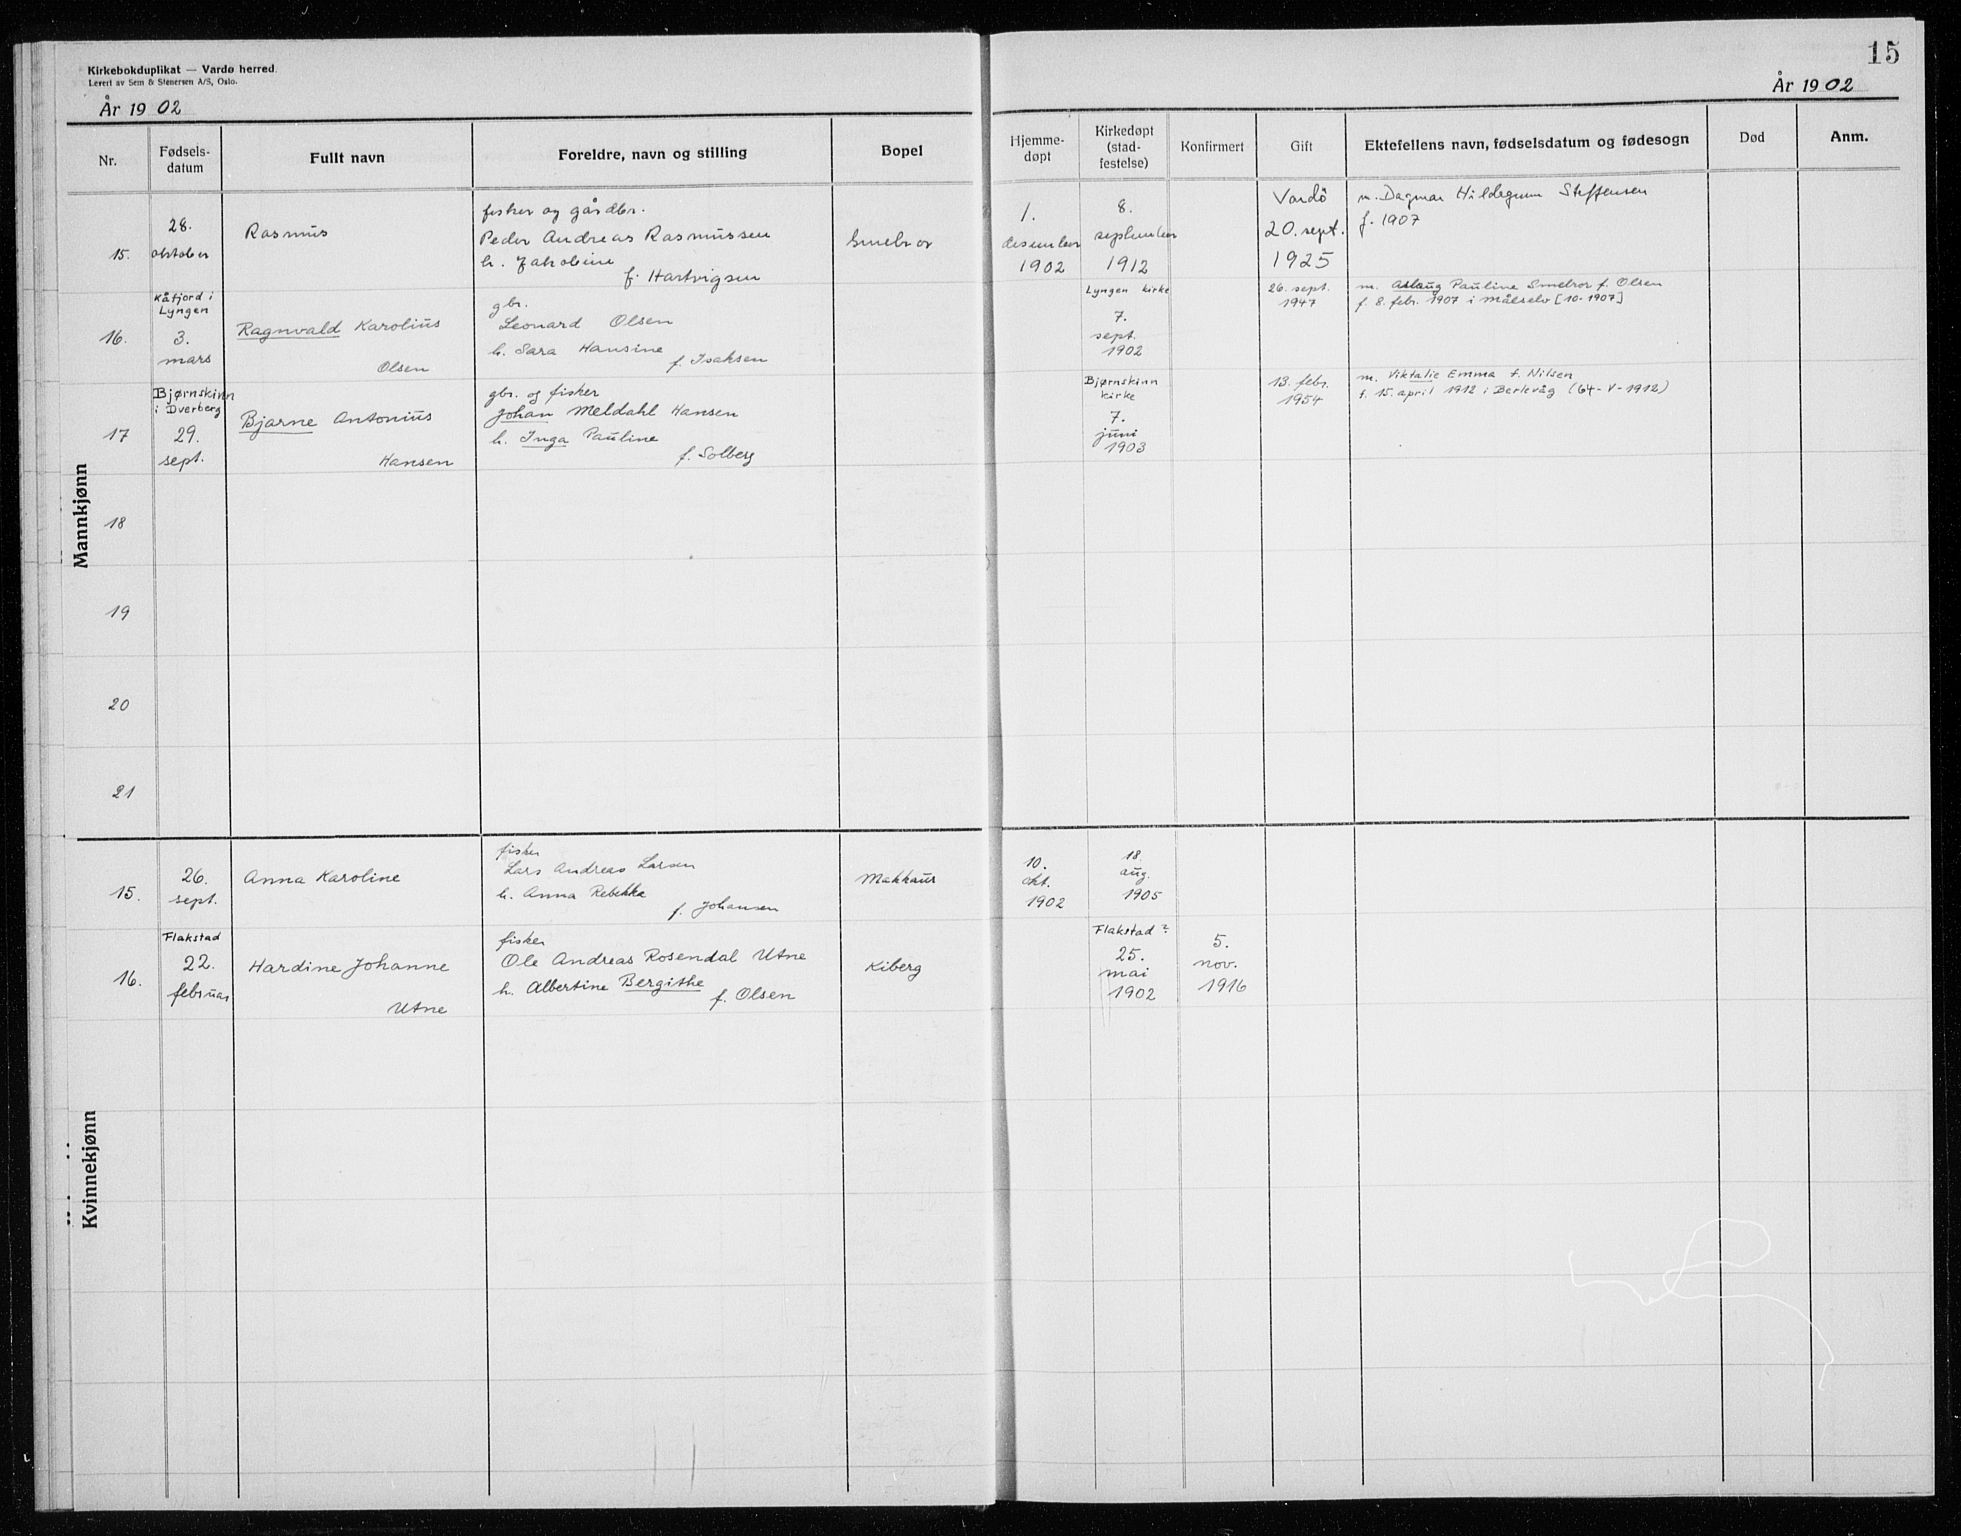 Kirkebokduplikat — Vardø herred.
Levert av Sem & Stenersen A/S, Oslo.
År 1902
15
År 1902
Nr.
Fødsels-
datum
Fullt navn
Foreldre, navn og stilling
Bopel
Hjemme-
døpt
Kirkedøpt
(stad-
festelse)
Konfirmert
Gift
Ektefellens navn, fødselsdatum og fødesogn
Død
Anm.
Mannkjønn
15.
28.
oktober
Rasmus
fisker og gårdbr.
Peder Andreas Rasmussen
h. Jakobine
f. Hartvigsen
Smelror
1.
desember
1902
8.
september
1912
Vardö
20. sept.
1925
m. Dagmar Hildegunn Steffensen
f. 1907
16.
Kåfjord i
Lyngen
3.
mars
Ragnvald Karolius
Olsen
gbr.
Leonard Olsen
h. Sara Hansine
f. Isaksen
Lyngen kirke
7.
sept.
1902
26. sept.
1947
m. Aslaug Pauline Smelror f. Olsen
f. 8. febr. 1907 i Målselv [10-1907]
17
Bjørnskinn
i Dverberg
29.
sept.
Bjarne Antonius
Hansen
gbr. og fisker
Johan Meldahl Hansen
h. Inga Pauline
f. Solberg
Bjørnskinn
kirke
7.
juni
1903
13. febr.
1954
m. Viktalie Emma f. Nilsen
f. 15. april 1912 i Berlevåg (64-V-1912)
18
19
20
21
Kvinnekjønn
15.
26.
sept.
Anna Karoline
fisker
Lars Andreas Larsen
h. Anna Rebekka
f. Johansen
Makkaur
10.
okt.
1902
18.
aug.
1905
16.
Flakstad
22.
februar
Hardine Johanne
Utne
fisker
Ole Andreas Rosendal Utne
h. Albertine Bergithe
f. Olsen
Kiberg
Flakstad?
25.
mai
1902
5.
nov.
1916